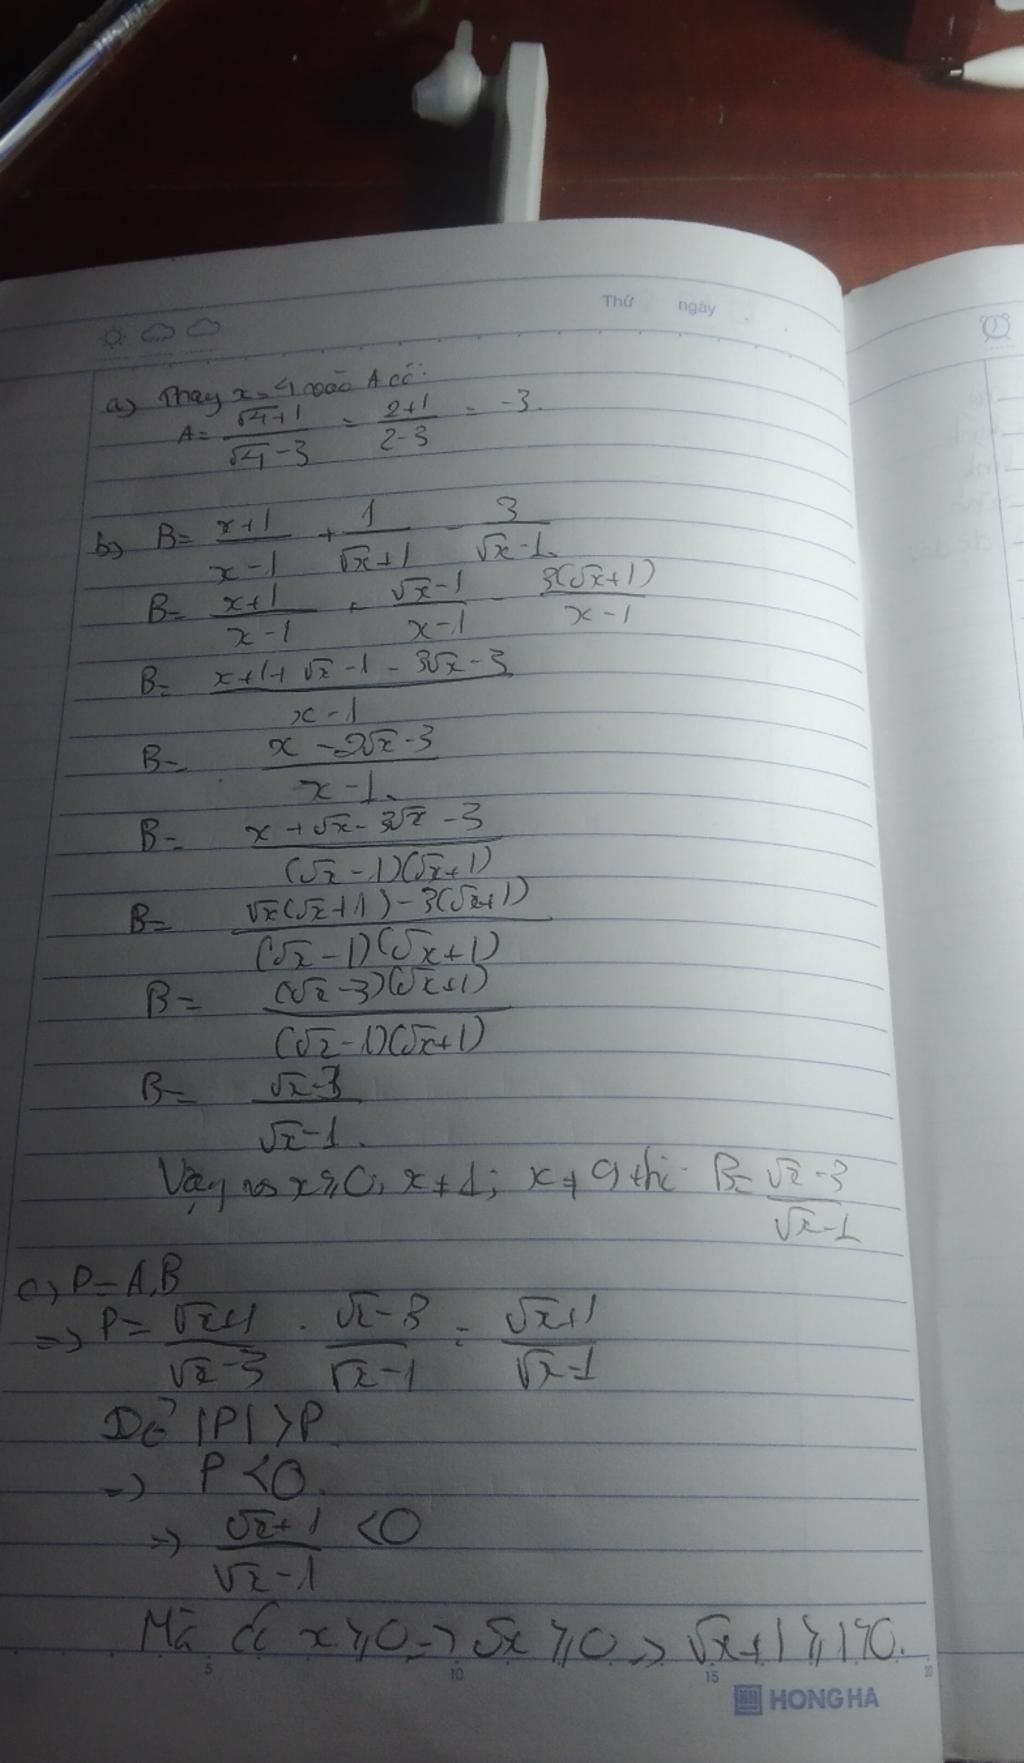 Thứ ngày
a) Thay x = 4 vào A có:
A = (√4+1)/(√4-3) = (2+1)/(2-3) = -3.
b) B = (x+1)/(x-1) + 1/(√x+1) - 3/(√x-1).
B = (x+1)/(x-1) + (√x-1)/(x-1) - 3(√x+1)/(x-1)
B = (x+1+√x-1-3√x-3)/(x-1)
B = (x-2√x-3)/(x-1).
B = (x+√x-3√x-3)/((√x-1)(√x+1))
B = (√x(√x+1)-3(√x+1))/((√x-1)(√x+1))
B = ((√x-3)(√x+1))/((√x-1)(√x+1))
B = (√x-3)/(√x-1).
Vậy x ≥ 0; x ≠ 1; x ≠ 9 thì B = (√x-3)/(√x-1)
c) P = A.B
=> P = (√x+1)/(√x-3) . (√x-3)/(√x-1) = (√x+1)/(√x-1)
Để |P| > P
=> P < 0.
=> (√x+1)/(√x-1) < 0
Mà có x ≥ 0 => √x ≥ 0 => √x+1 ≥ 1 > 0.
5 10 15 20
HONG HA